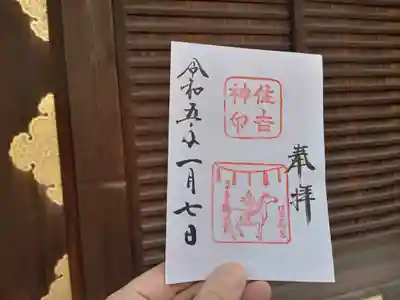 奉拝
住吉
神印
令和五年一月七日